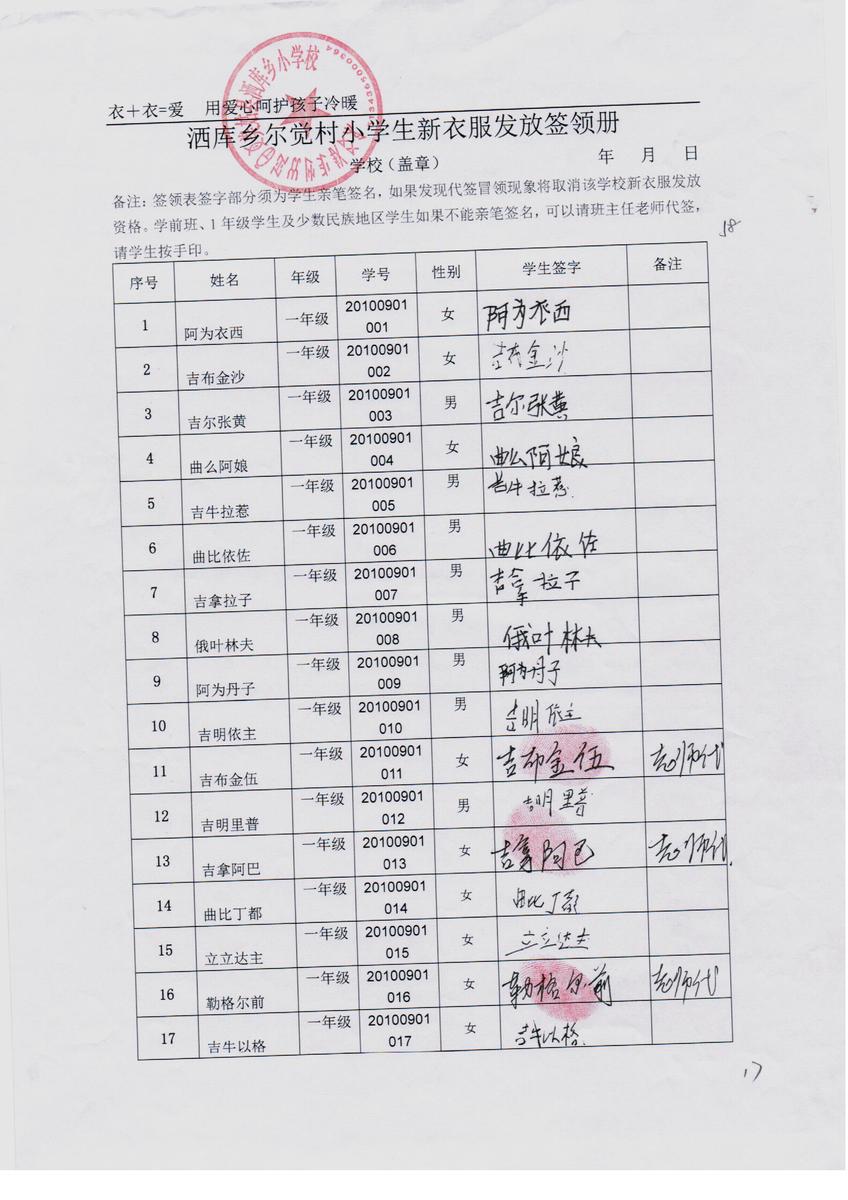 衣+衣=爱 用爱心呵护孩子冷暖
洒库乡尔觉村小学生新衣服发放签领册
学校（盖章） 年 月 日
备注：签领表签字部分须为学生亲笔签名，如果发现代签冒领现象将取消该学校新衣服发放
资格。学前班、1年级学生及少数民族地区学生如果不能亲笔签名，可以请班主任老师代签，
请学生按手印。
18
序号 姓名 年级 学号 性别 学生签字 备注
1 阿为衣西 一年级 20100901001 女 阿为衣西
2 吉布金沙 一年级 20100901002 女 吉布金沙
3 吉尔张黄 一年级 20100901003 男 吉尔张黄
4 曲么阿娘 一年级 20100901004 女 曲么阿娘
5 吉牛拉惹 一年级 20100901005 男 吉牛拉惹
6 曲比依佐 一年级 20100901006 男 曲比依佐
7 吉拿拉子 一年级 20100901007 男 吉拿拉子
8 俄叶林夫 一年级 20100901008 男 俄叶林夫
9 阿为丹子 一年级 20100901009 男 阿为丹子
10 吉明依主 一年级 20100901010 男 吉明依主
11 吉布金伍 一年级 20100901011 女 吉布金伍 老师代
12 吉明里普 一年级 20100901012 男 吉明里普
13 吉拿阿巴 一年级 20100901013 女 吉拿阿巴 老师代
14 曲比丁都 一年级 20100901014 女 曲比丁都
15 立立达主 一年级 20100901015 女 立立达主
16 勒格尔前 一年级 20100901016 女 勒格尔前 老师代
17 吉牛以格 一年级 20100901017 女 吉牛以格
17